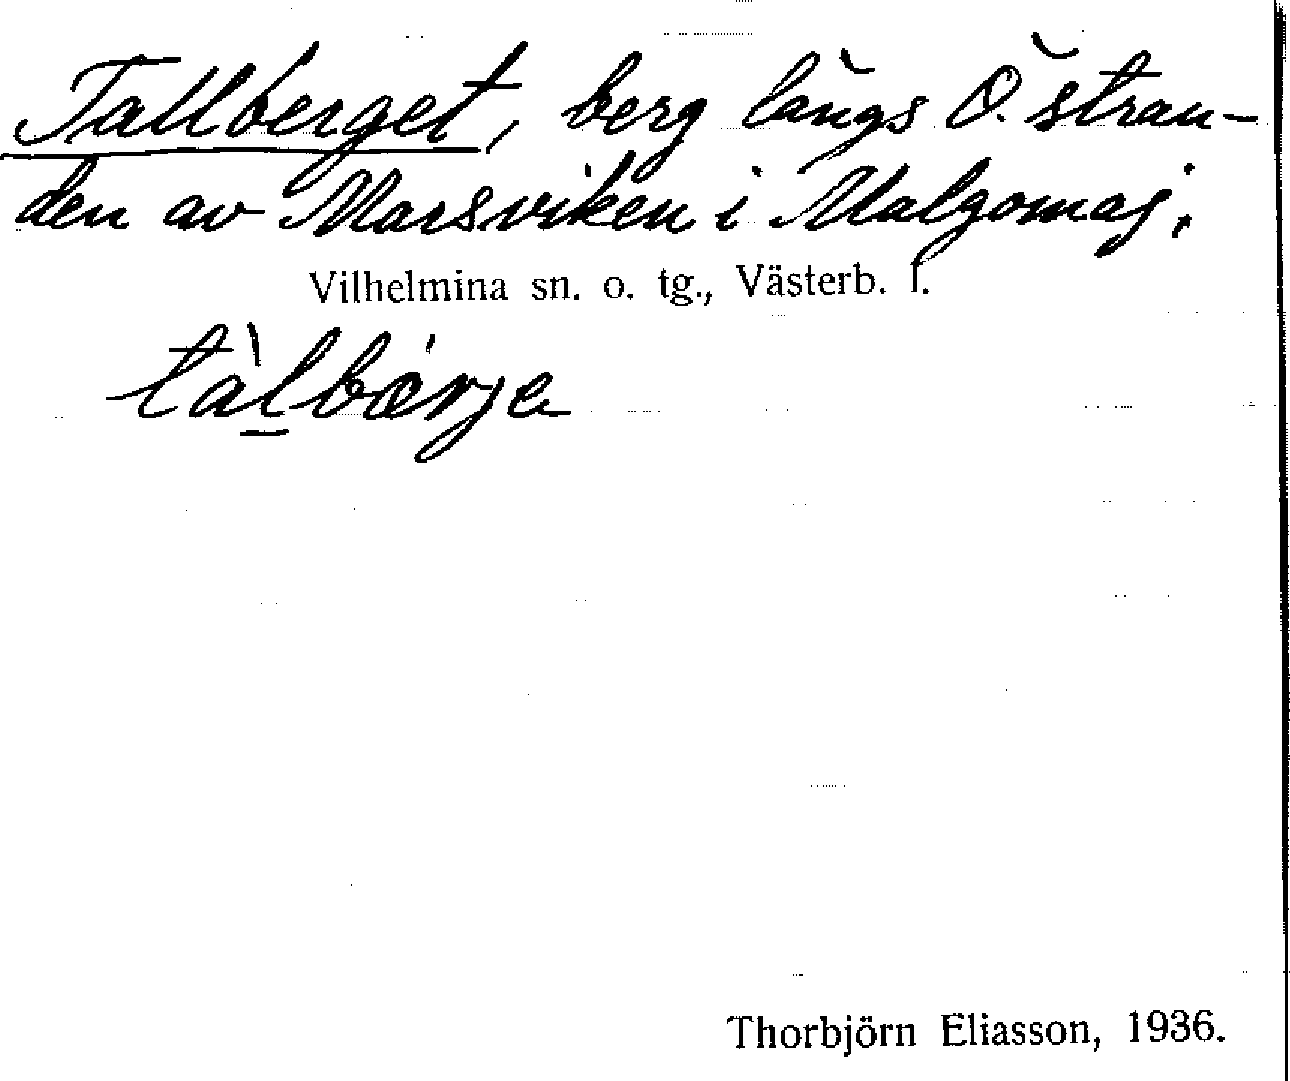 Tallberget, berg längs Ö. stran-
den av Marsviken i Malgomaj.
Vilhelmina sn. o. tg., Västerb. l.
tàl̠bǽrje
Thorbjörn Eliasson, 1936.